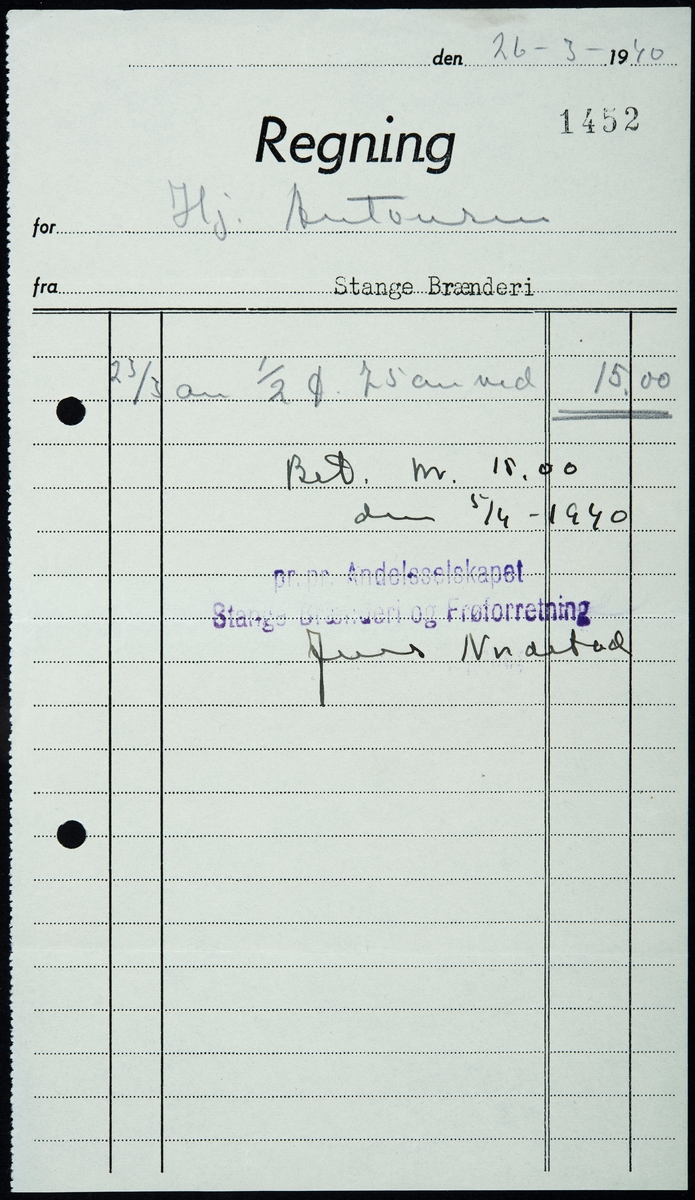 den 26-3-1940
Regning 1452
for Hj. Antonsen
fra Stange Brænderi
23/3 an 1/2 f. 75 cm ved 15.00
Bet. kr. 15.00
den 5/4-1940
pr. pr. Andelsselskapet
Stange Brænderi og Frøforretning
Jens